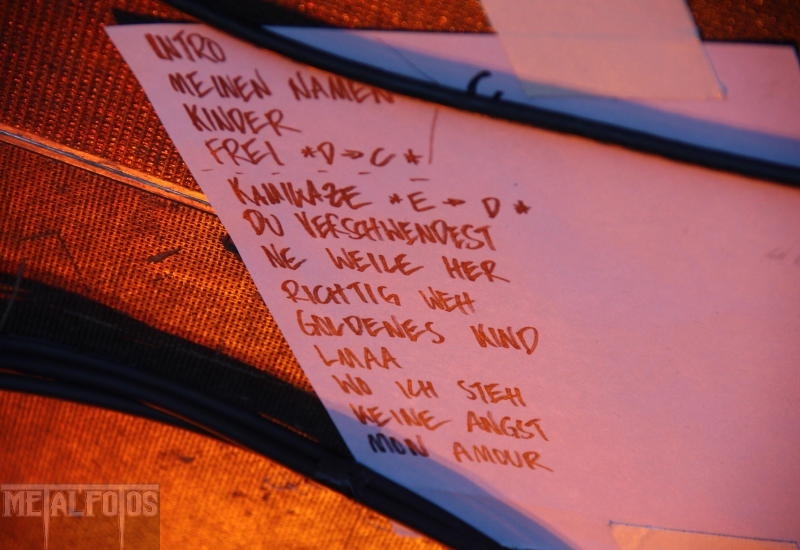 INTRO
MEINEN NAMEN
KINDER
FREI *D→C*
KAMIKAZE *E→D*
DU VERSCHWENDEST
NE WEILE HER
RICHTIG WEH
GOLDENES KIND
LMAA
WO ICH STEH
KEINE ANGST
MON AMOUR
METALFOTOS